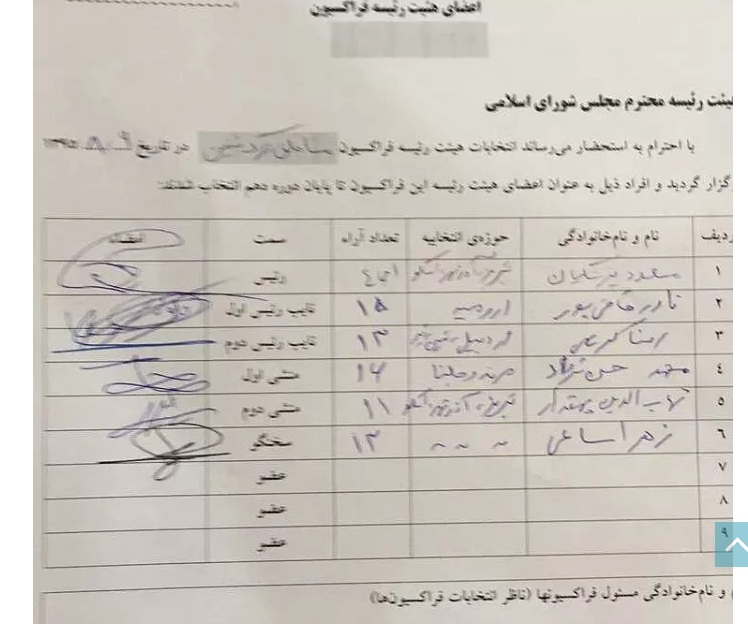 اعضای هیئت رئیسه فراکسیون
هیئت رئیسه محترم مجلس شورای اسلامی
با احترام به استحضار می‌رساند انتخابات هیئت رئیسه فراکسیون مناطق ترک نشین در تاریخ
برگزار گردید و افراد ذیل به عنوان اعضای هیئت رئیسه این فراکسیون تا پایان دوره دهم انتخاب شدند:
ردیف نام و نام‌خانوادگی حوزه‌ی انتخابیه تعداد آراء سمت امضاء
۱ مسعود پزشکیان تبریز، آذرشهر، اسکو اجماع رئیس
۲ نادر قاضی پور ارومیه ۱۵ نایب رئیس اول
۳ رضا کریمی اردبیل ۱۳ نایب رئیس دوم
۴ محمد حسن نژاد مرند و جلفا ۱۴ منشی اول
۵ شهاب الدین بیمقدار تبریز، آذرشهر، اسکو ۱۱ منشی دوم
۶ زهرا ساعی ~ ~ ~ ۱۳ سخنگو
۷ عضو
۸ عضو
۹ عضو
و نام‌خانوادگی مسئول فراکسیونها (ناظر انتخابات فراکسیون‌ها)